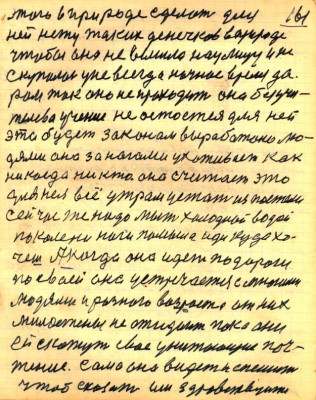 этого в природе сделат для 161
ней нету таких денечков в природе
чтобы она не вышла на улицу и не
скупалась уже всегда ночное время да
ром так оно не проходит она Учи
телева учение не остается для ней
это будет законам выработано лю
дями она за ногами ухаживает как
никогда никто она считает это
для нея всё утрам устат из постели
сейчас же надо мыт холодной водой
по колено ноги помыла иди куда хо
чеш А когда она идет по дороги
по своей она устречается с
людями и разного возроста от них
милостыни не отходит пока они
ей скажут свое почтение
тение. сама она видет и спешит
чтоб сказат им здравствуйте